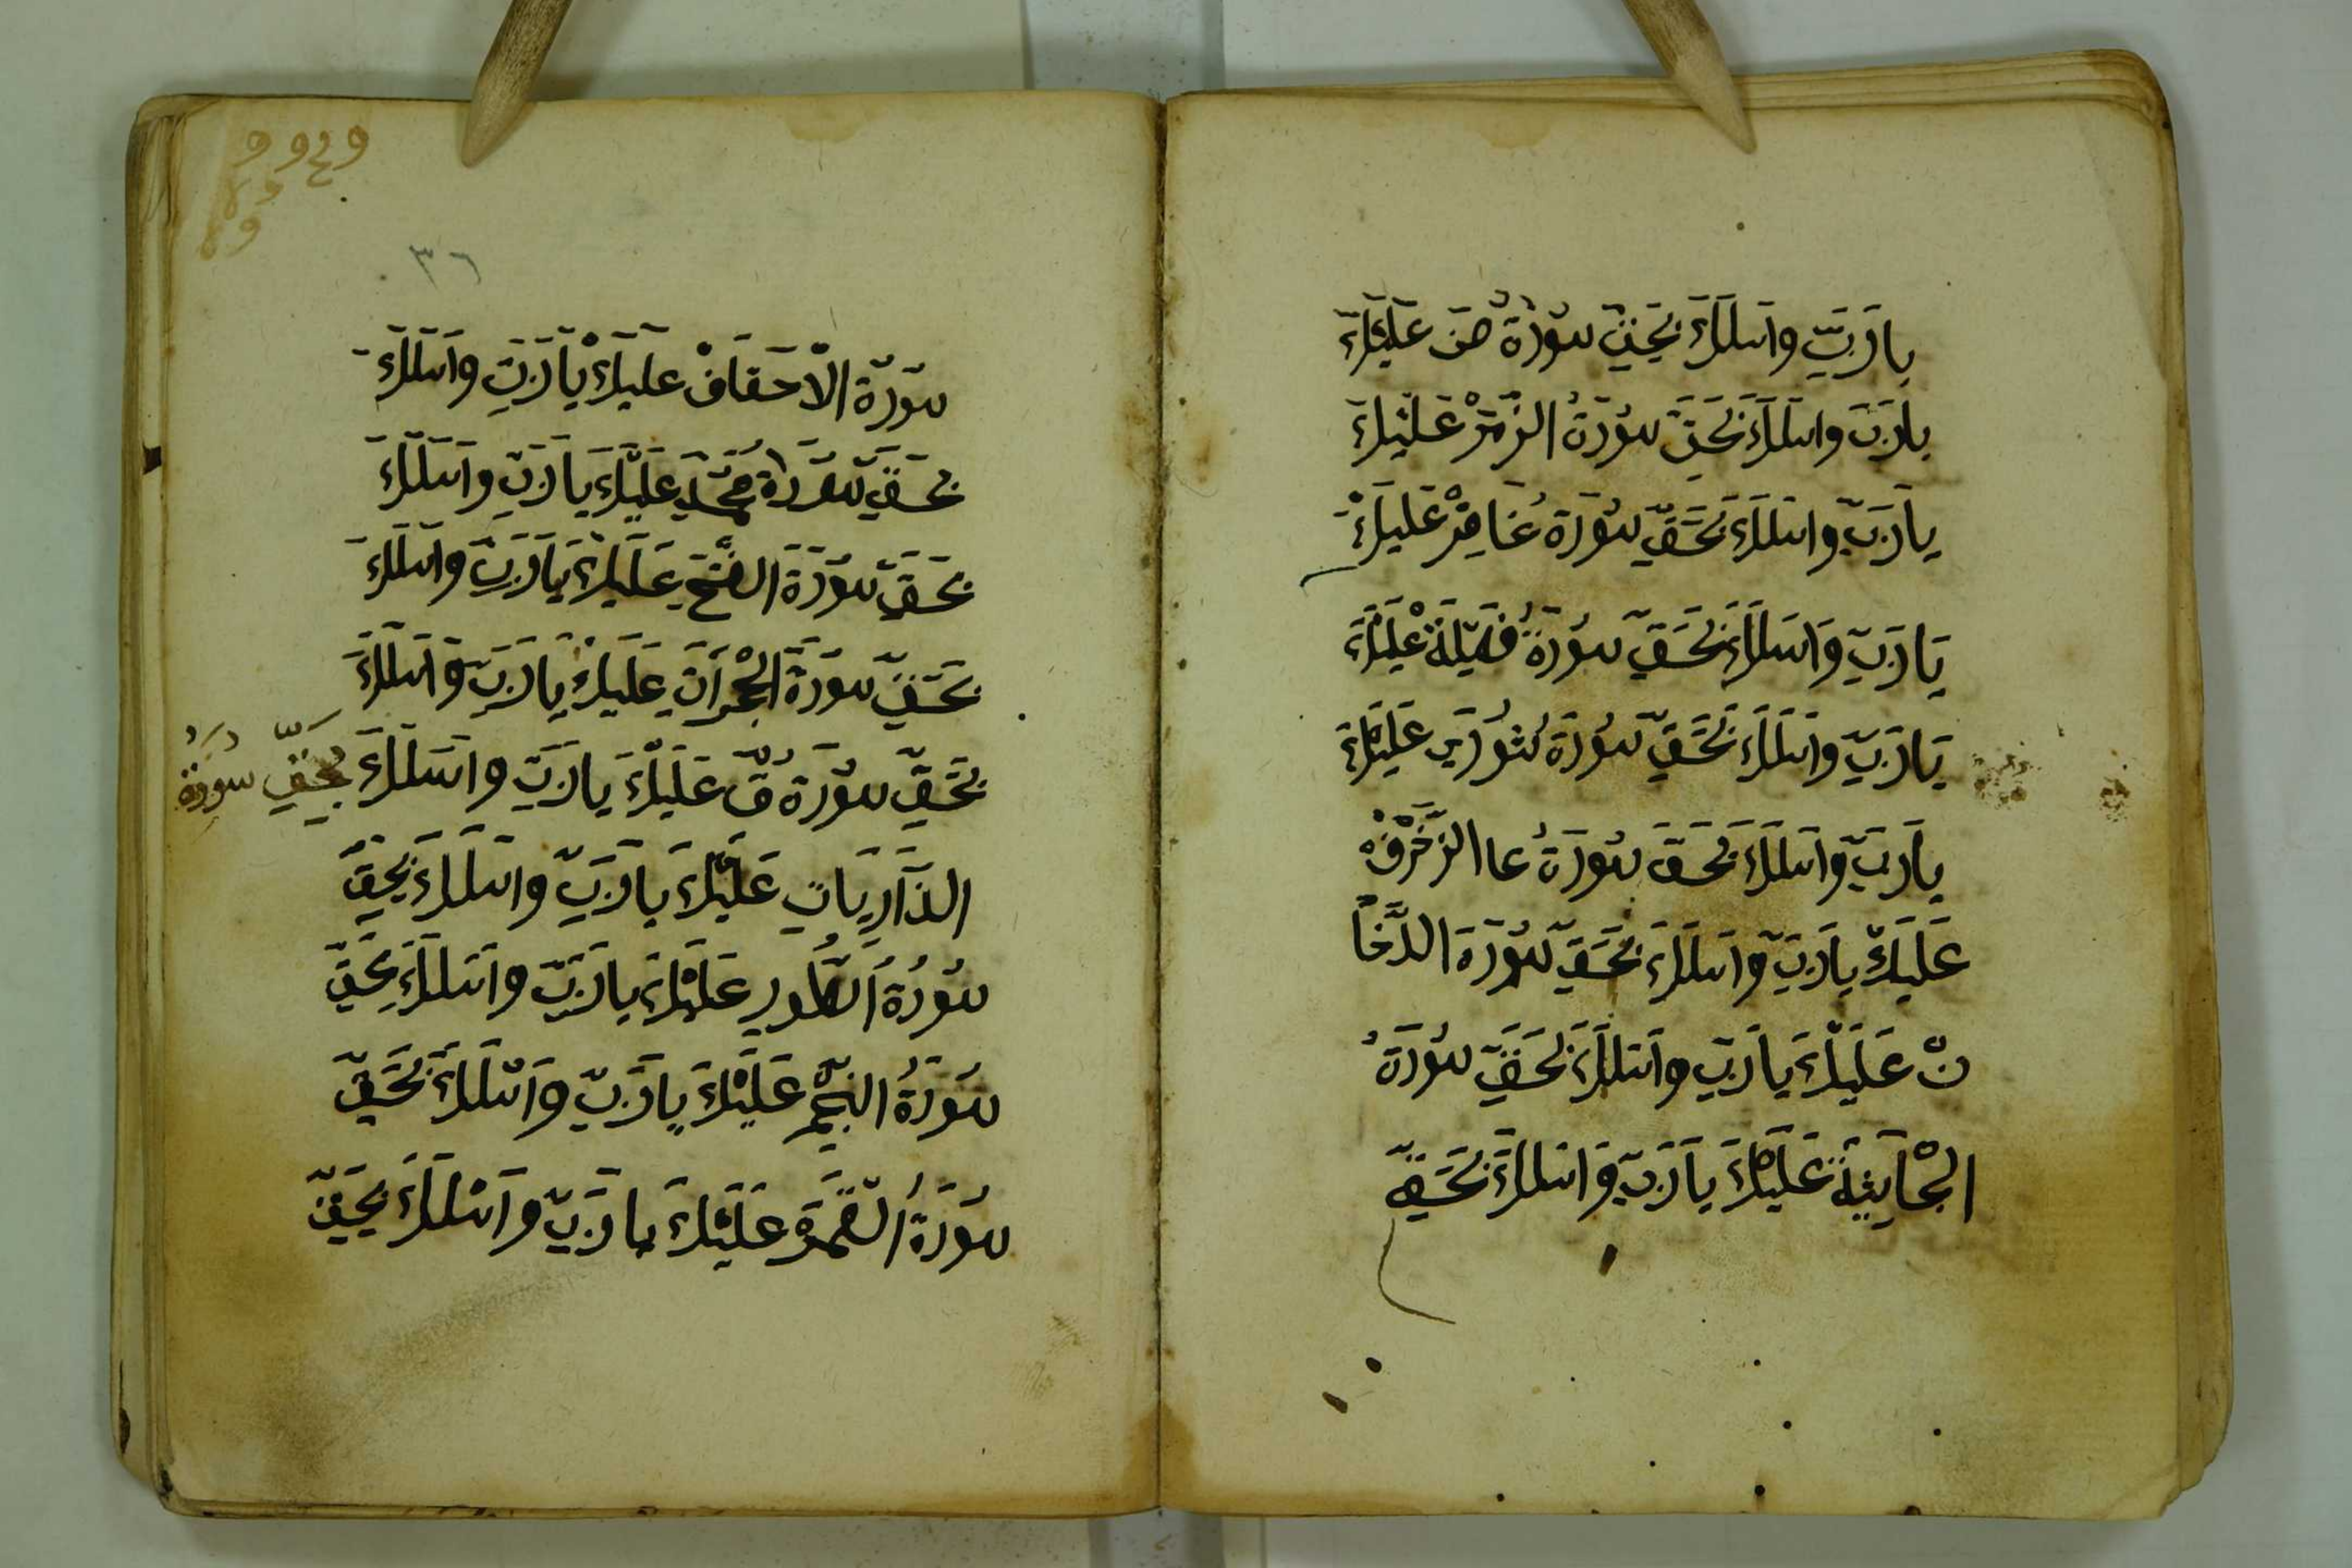 يارَبِّ واسلَلَكَ بِحَقِّ سُوْرَةُ صَ عَلَيْكَ
يارَبَّ واسلَلَكَ بَحَقِّ سُوْرَةُ الزُّمَرْ عَلَيْكَ
يارَبِّ واسلَلَكَ بَحَقِّ سُوْرَة غَافِرْ عَلَيكَ
يَارَبِّ وَاسلَلَكَ بَحَقِّ سُوْرَةُ فُصّلَةْ عَلَيْكَ
يَارَبِّ وَاسلَلَكَ بَحَقِّ سُوْرَة شُوْرَى عَلَيْكَ
يارَبِّ وَاسلَلَكَ بَحَقِّ سُوْرَةُ عا الزُّخْرُفْ
عَلَيكَ يارَبِّ واسلَلَكَ بَحَقِّ سُوْرَة الدُّخَا
نْ عَلَيْكَ يارَبِّ واسلَلَكَ بَحَقِّ سُوْرَةُ
الجْاَثِيَةْ عَلَيْكَ يارَبِّ وَاسلَلَكَ بَحَقِّ
٣٦
سُوْرَة الْاحَقَافْ عَلَيكَ يارَبِّ واسلَلَكَ
بَحَقِّ سُوْرَاة مُحَمَّدٍ عَلَيْكَ يارَبِّ واسلَلَكَ
بَحَقِّ سُوْرَةَ الفَتْحِ عَلَيكَ يارَبِّ واسلَلَكَ
بَحَقِّ سُوْرَةَ الحْجرَاَتِ عَلَيكَ يارَبِّ وَاسلَلَكَ
بَحَقِّ سُوْرَةُ قّ عَلَيْكَ يارَبِّ واسَلَلَكَ بِحَقِّ سُوْرَةُ
الذَّارِيَاتِ عَلَيْكَ يارَبِّ واسلَلَكَ بِحَقِّ
سُوْرَةُ الطُّورِ عَلَيْكَ يارَبِّ واسلَلَكَ بِحَقِّ
سُوْرَةُ النَجّمِ عَلَيْكَ يارَبِّ واسلَلَكَ بَحَقِّ
سُوْرَةُ القّمَرَ عَلَيْكَ يارَبِّ واسلَلَكَ بِحَقِّ